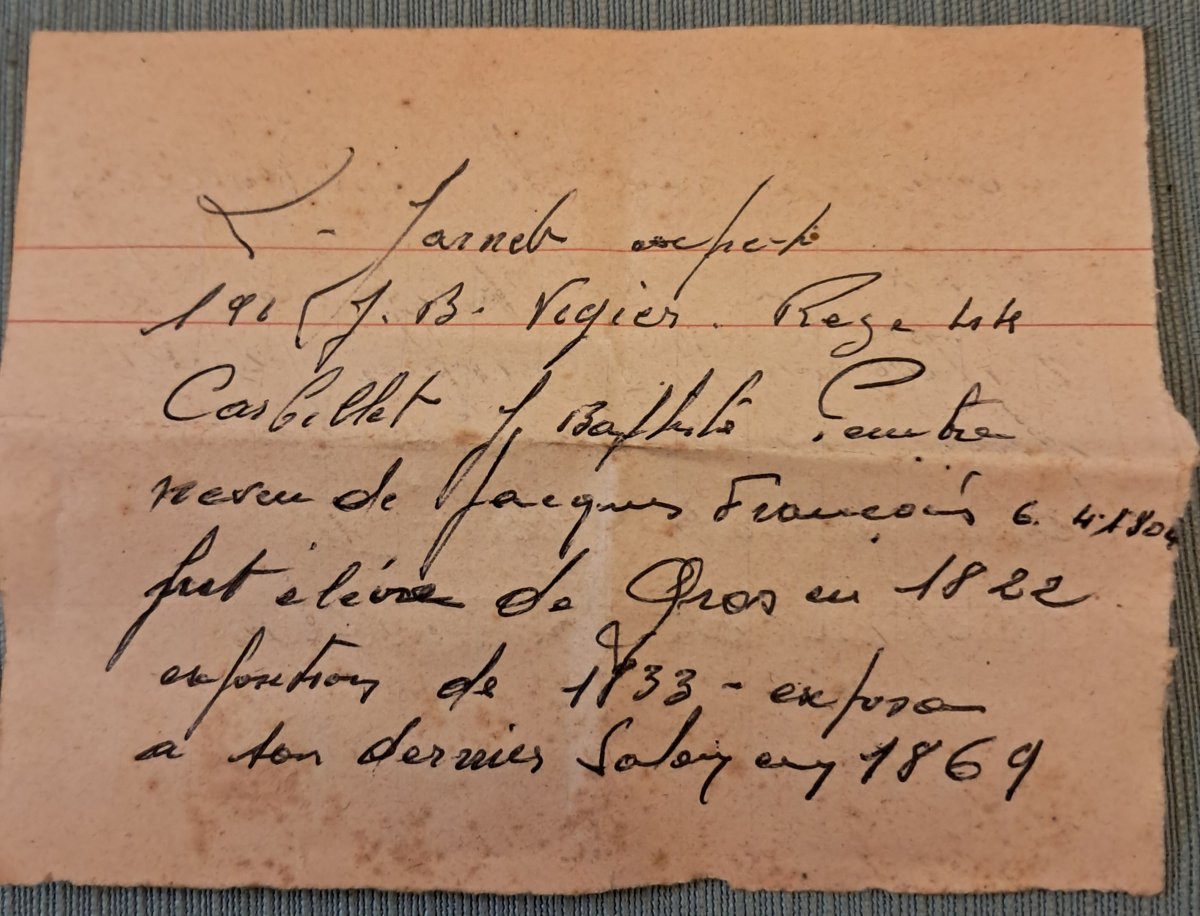 - Jarnet expert
J. B. Vigier. Reze 44
Carbillet J Baptiste Peintre
neveu de Jacques François 6. 4. 1804
fut élève de Gros en 1822
expositions de 1833 - exposa
a son dernier Salon en 1869